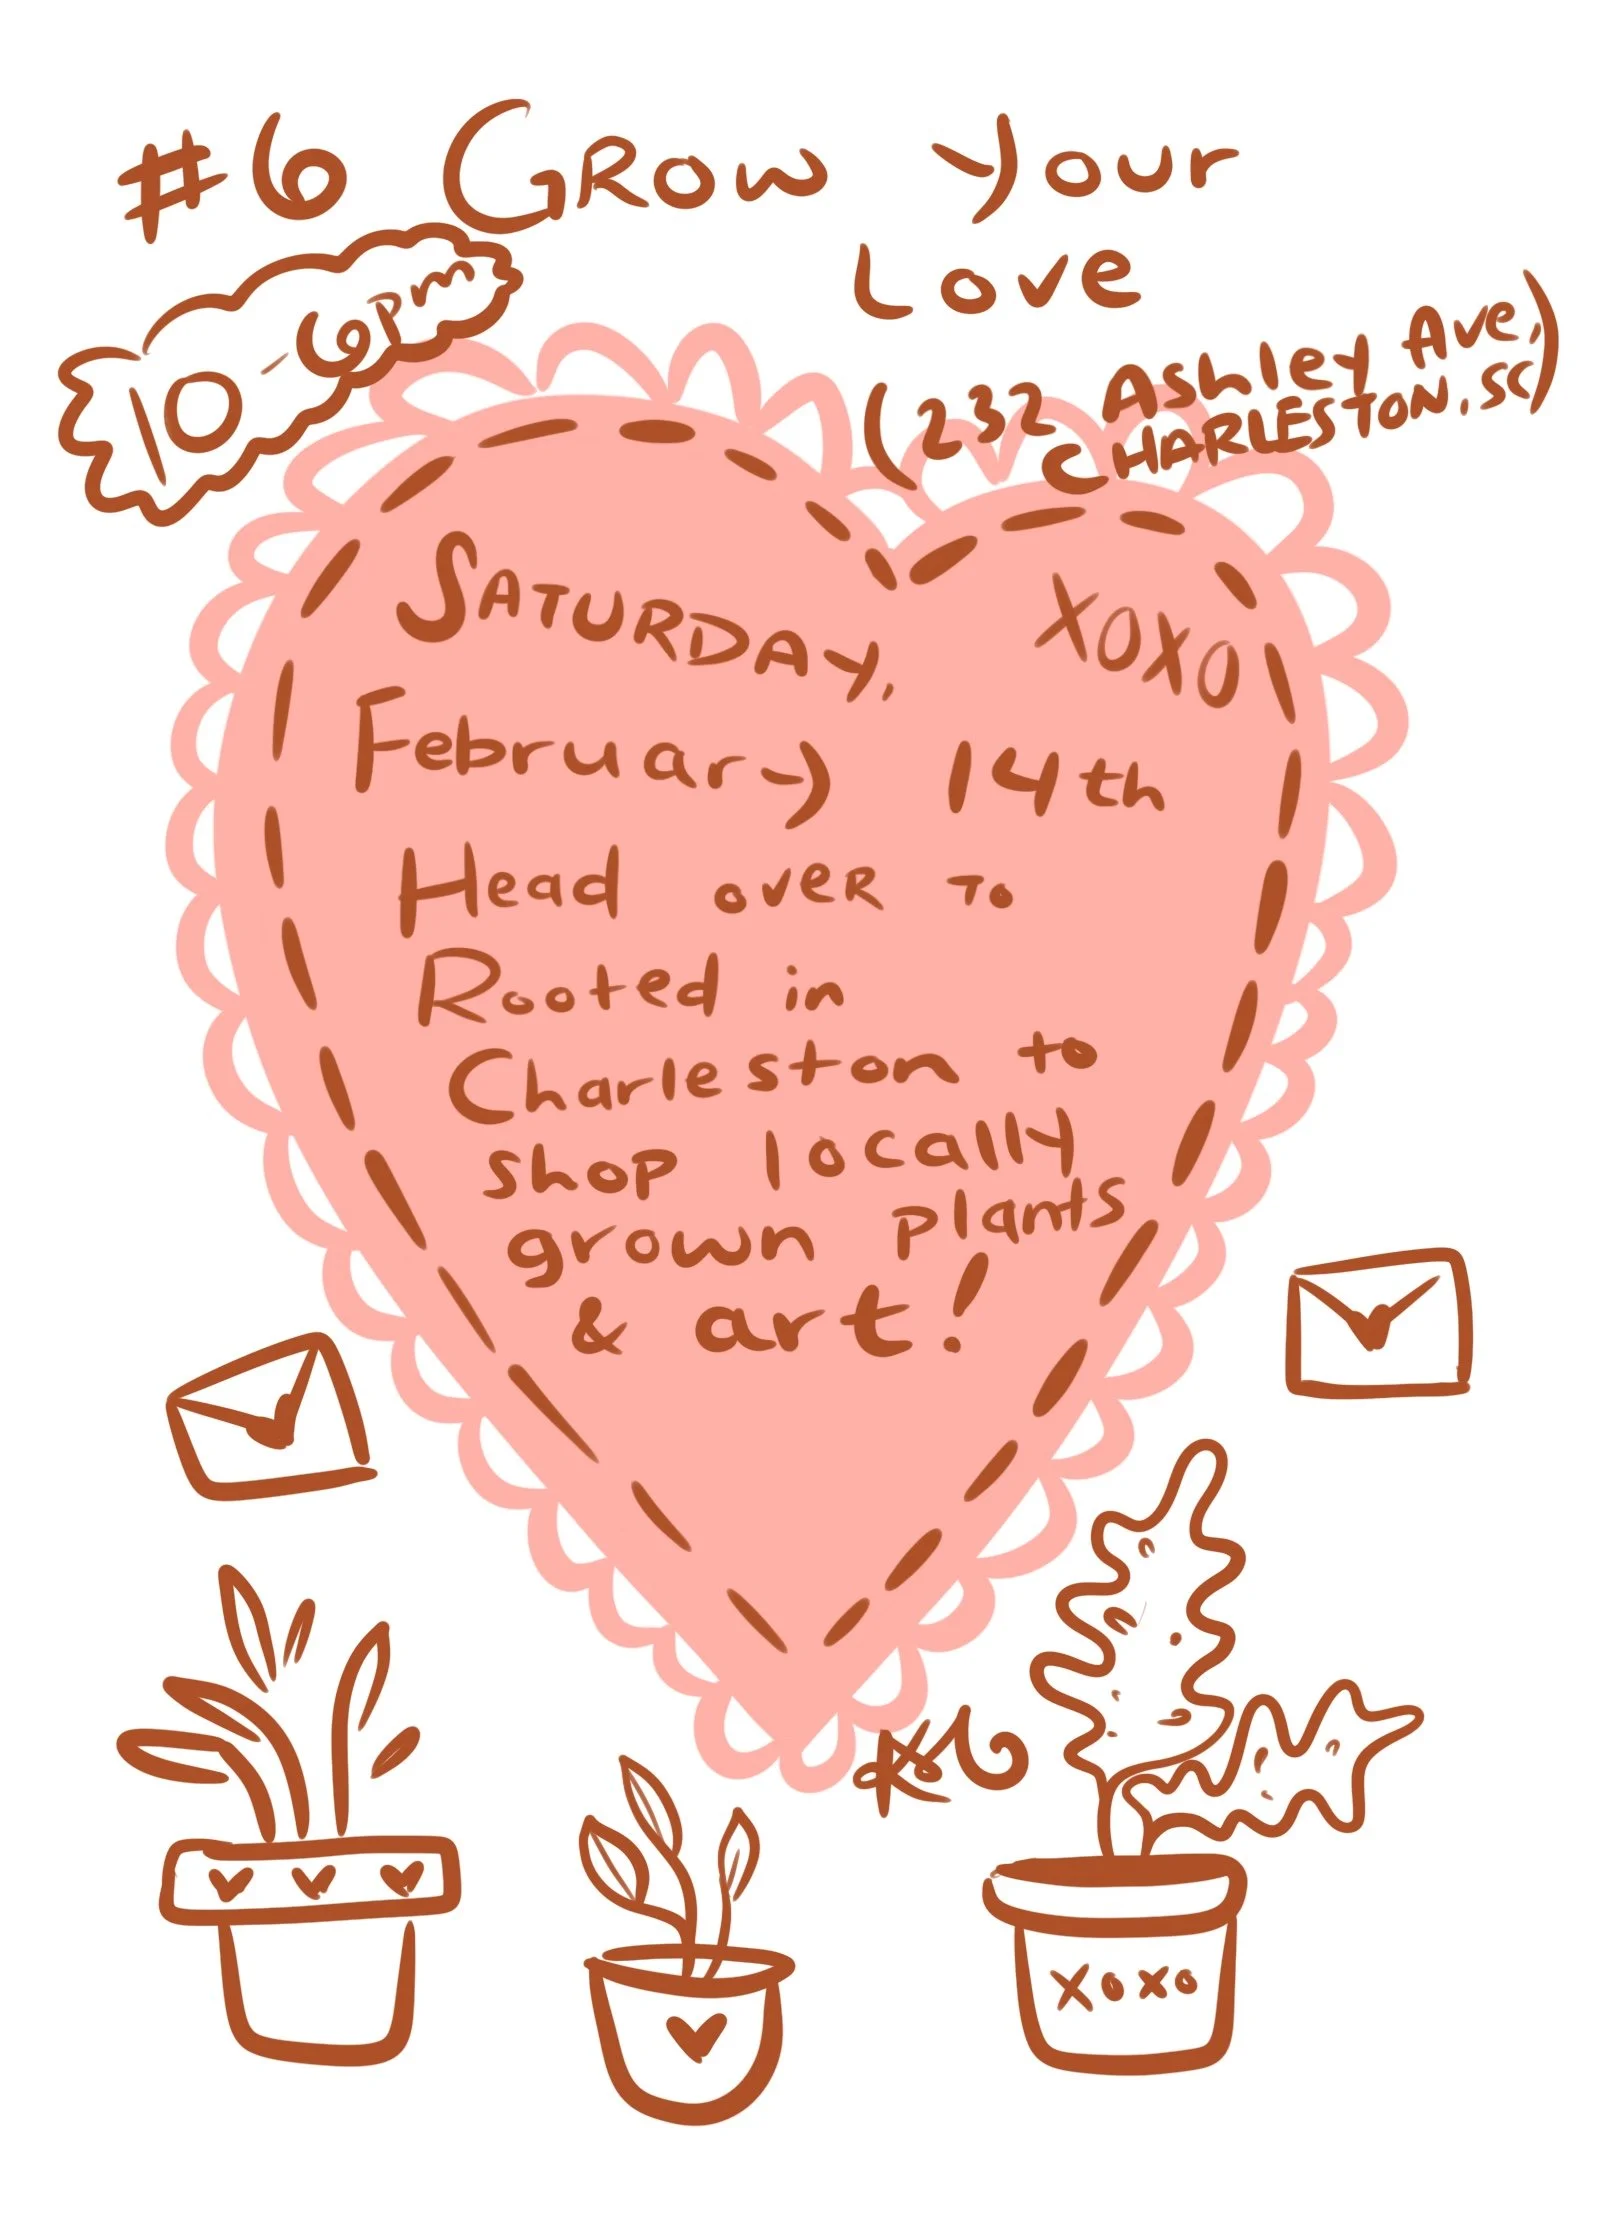 #6 Grow Your
Love
10-6PM
(232 Ashley Ave,
Charleston, SC)
XOXO
Saturday,
February 14th
Head over to
Rooted in
Charleston to
shop locally
grown plants
& art!
xoxo